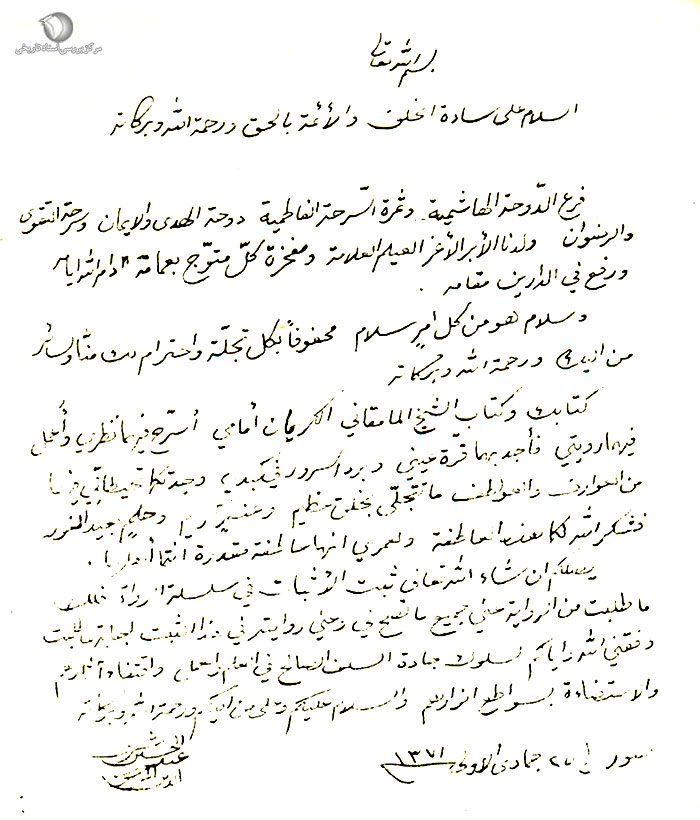 مركز بررسی اسناد تاریخی
بسم الله تعالى
السلام على سادة الخلق والأئمة بالحق ورحمة الله وبركاته
فرع الدّوحة الهاشمية وثمرة السّرحة الفاطمية دوحة الهدى والايمان وسرحة التقوى
والرضوان ولدنا الأبر الأغر العيلم العلامة ومفخرة كلّ متوّج بعمامة دام الله
ورفع في الدارين مقامه .
وسلام هو من كل امرٍ سلام محفوفاً بكل تجلّة واحترام لك منّا
من اليك ورحمة الله وبركاته
كتابك وكتاب الشيخ المامقاني الكريمان أمامي أسترح فيهما نظري وأعمل
فيهما رويتي فأجد بهما قرّة عيني وبرد السرور في كبدي وجدتكما فيها
من العوارف والعواطف ما تتجلّى بخلق عظيم وعنصر كريم
فشكر الله لكما هذه العاطفة ولعمري انها عاطفة مقدرة
يصلكم ان شاء الله تعالى ثبت الأثبات في سلسلة الرواة
ما طلبت من الرواية عني جميع ما تصح لي روايته في هذا الثبت
وفقني الله واياكم لسلوك جادة السلف الصالح في العلم والعمل واقتفاء آثارهم
والاستضاءة بسواطع انوارهم والسلام عليكم وعلى من اليكم ورحمة الله وبركاته
صور في ٢٥ جمادى الاولى ١٣٧١
عبد الحسين شرف الدين